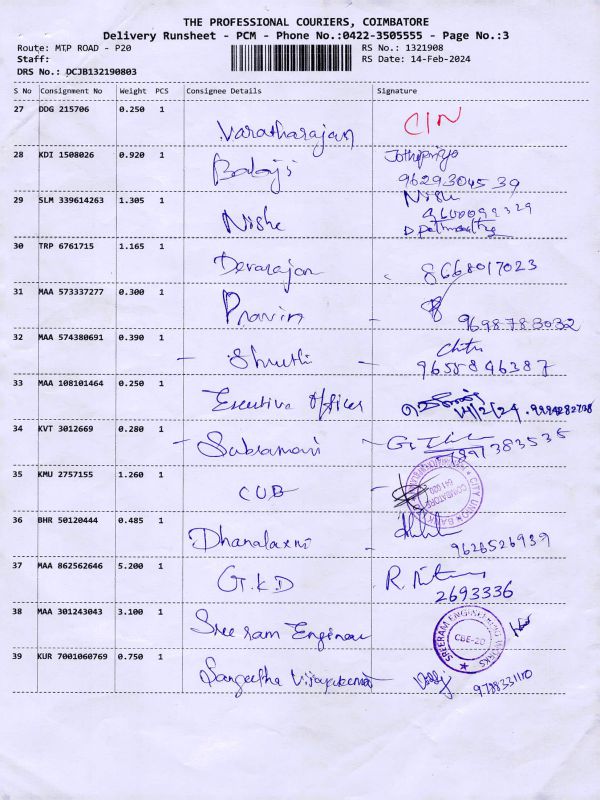 THE PROFESSIONAL COURIERS, COIMBATORE
Delivery Runsheet - PCM - Phone No.:0422-3505555 - Page No.:3
Route: MTP ROAD - P20
RS No.: 1321908
Staff:
RS Date: 14-Feb-2024
DRS No.: DCJB132190803
S No Consignment No Weight PCS Consignee Details Signature
27 DDG 215706 0.250 1 Varatharajan CIN
28 KDI 1508026 0.920 1 Balaji Jothipriya
9629304539
29 SLM 339614263 1.305 1 Nishe Nishe
30 TRP 6761715 1.165 1 Devarajan 8668017023
31 MAA 573337277 0.300 1 Pravin
9698783032
32 MAA 574380691 0.390 1 - Shruthi - Chitr
9655846387
33 MAA 108101464 0.250 1 Executive Officer
14/2/24. 9994282738
34 KVT 3012669 0.280 1 - Subramani -
7397383535
35 KMU 2757155 1.260 1 CUB - CITY UNION BANK
COIMBATORE
36 BHR 50120444 0.485 1 Dhanalaxmi -
9626526939
37 MAA 862562646 5.200 1 G.K.D R.
2693336
38 MAA 301243043 3.100 1 Sree ram Enginee SREERAM ENGINEERING WORKS
CBE-20
39 KUR 7001060769 0.750 1 Sangeetha Vijayakumar
9788331110